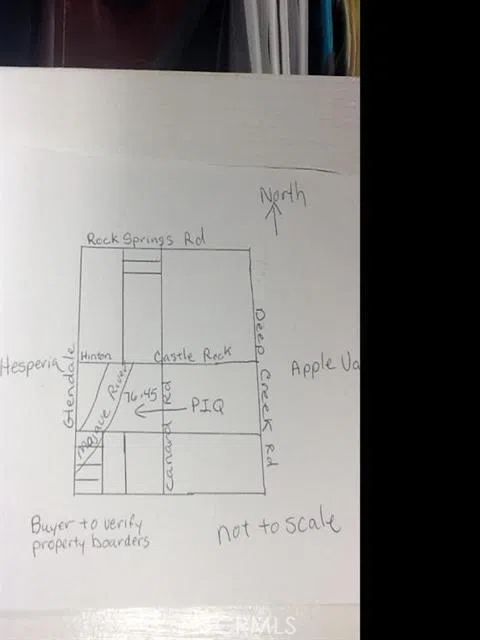 North
Rock Springs Rd
Hesperia
Glendale
Hinton
Castle Rock
Deep Creek Rd
Apple Va
Mojave River
76.45
PIQ
Canard Rd
Buyer to verify
property boarders
not to scale
CRMLS